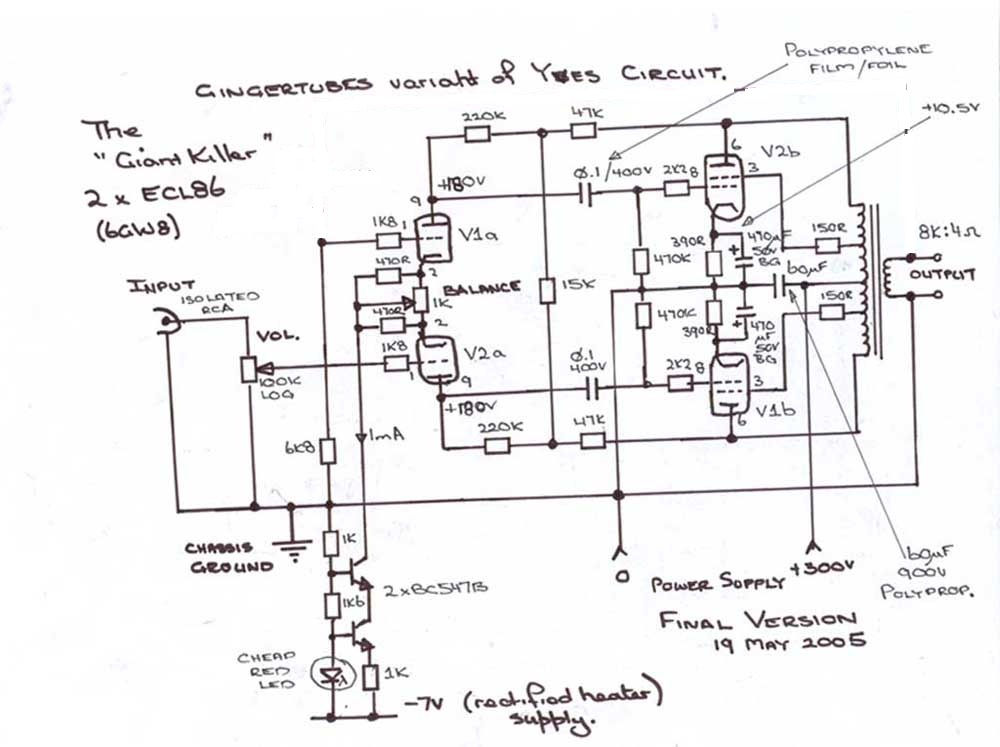 GINGERTUBES variaht of YVES CIRCUIT.
POLYPROPYLENE
FILM/FOIL
+10.5V
The
"Giant Killer"
2 x ECL86
(6GW8)
220K
47K
Ø.1/400V
2K2
8
6
V2b
3
+180V
9
1K8
1
V1a
470R
2
BALANCE
1K
470R
2
1K8
1
V2a
9
+180V
390R
470K
+
470µF
50V
BG
60µF
150R
8K:4Ω
OUTPUT
15K
470K
390R
+
470
µF
50V
BG
150R
Ø.1
400V
2K2
8
3
V1b
6
220K
47K
INPUT
ISOLATED
RCA
VOL.
100K
LOG
6K8
1mA
CHASSIS
GROUND
1K
2xBC547B
1K6
CHEAP
RED
LED
1K
-7V (rectified heater)
supply.
0
POWER SUPPLY
+300V
60µF
900V
POLYPROP.
FINAL VERSION
19 MAY 2005